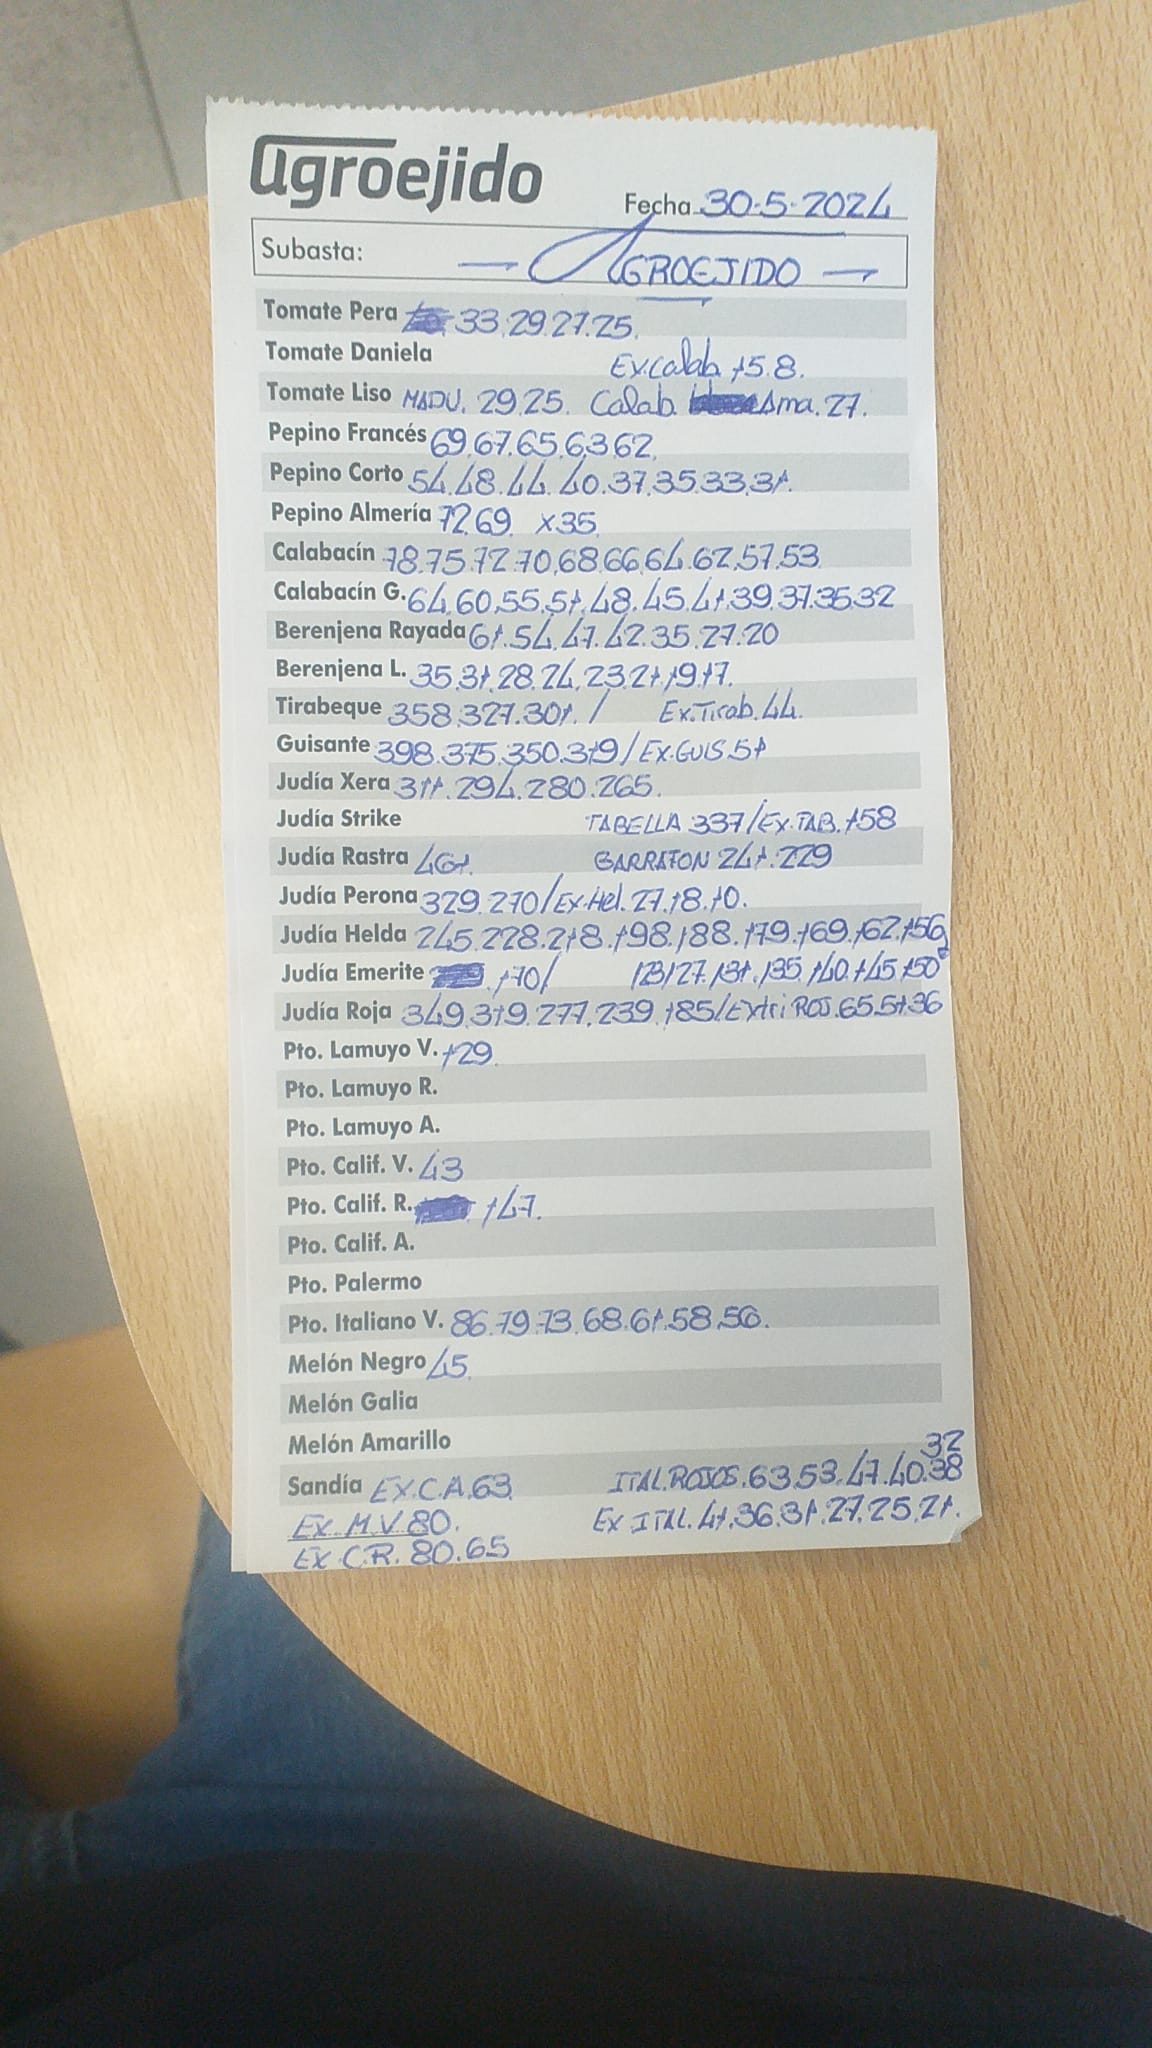 agroejido
Fecha 30-5-2024
Subasta: — AGROEJIDO —
Tomate Pera 33.29.27.25.
Tomate Daniela Ex.Calab. 15.8.
Tomate Liso MADU. 29.25. Calab. Ama. 27.
Pepino Francés 69.67.65.63.62.
Pepino Corto 54.48.44.40.37.35.33.31.
Pepino Almería 72.69. x35.
Calabacín 78.75.72.70.68.66.64.62.57.53
Calabacín G. 64.60.55.51.48.45.41.39.37.35.32
Berenjena Rayada 61.54.47.42.35.27.20
Berenjena L. 35.31.28.24.23.21.19.17.
Tirabeque 358.327.301. / Ex.Tirab.44.
Guisante 398.375.350.319/Ex.GUIS.51
Judía Xera 311.294.280.265.
Judía Strike TABELLA 337/Ex.TAB.158
Judía Rastra 461. GARRAFON 241.229
Judía Perona 329.270/Ex.Hel.27.18.10.
Judía Helda 245.228.218.198.188.179.169.162.156
Judía Emerite 170/ 123127.131.135.140.145.150
Judía Roja 349.319.277.239.185/Extri ROJ.65.51.36
Pto. Lamuyo V. 129.
Pto. Lamuyo R.
Pto. Lamuyo A.
Pto. Calif. V. 43
Pto. Calif. R. 147.
Pto. Calif. A.
Pto. Palermo
Pto. Italiano V. 86.79.73.68.61.58.56.
Melón Negro 45.
Melón Galia
Melón Amarillo 32
Sandía EX.C.A.63. ITAL.ROJOS.63.53.47.40.38
EX.M.V.80. Ex ITAL.41.36.31.27.25.21.
EX.C.R.80.65